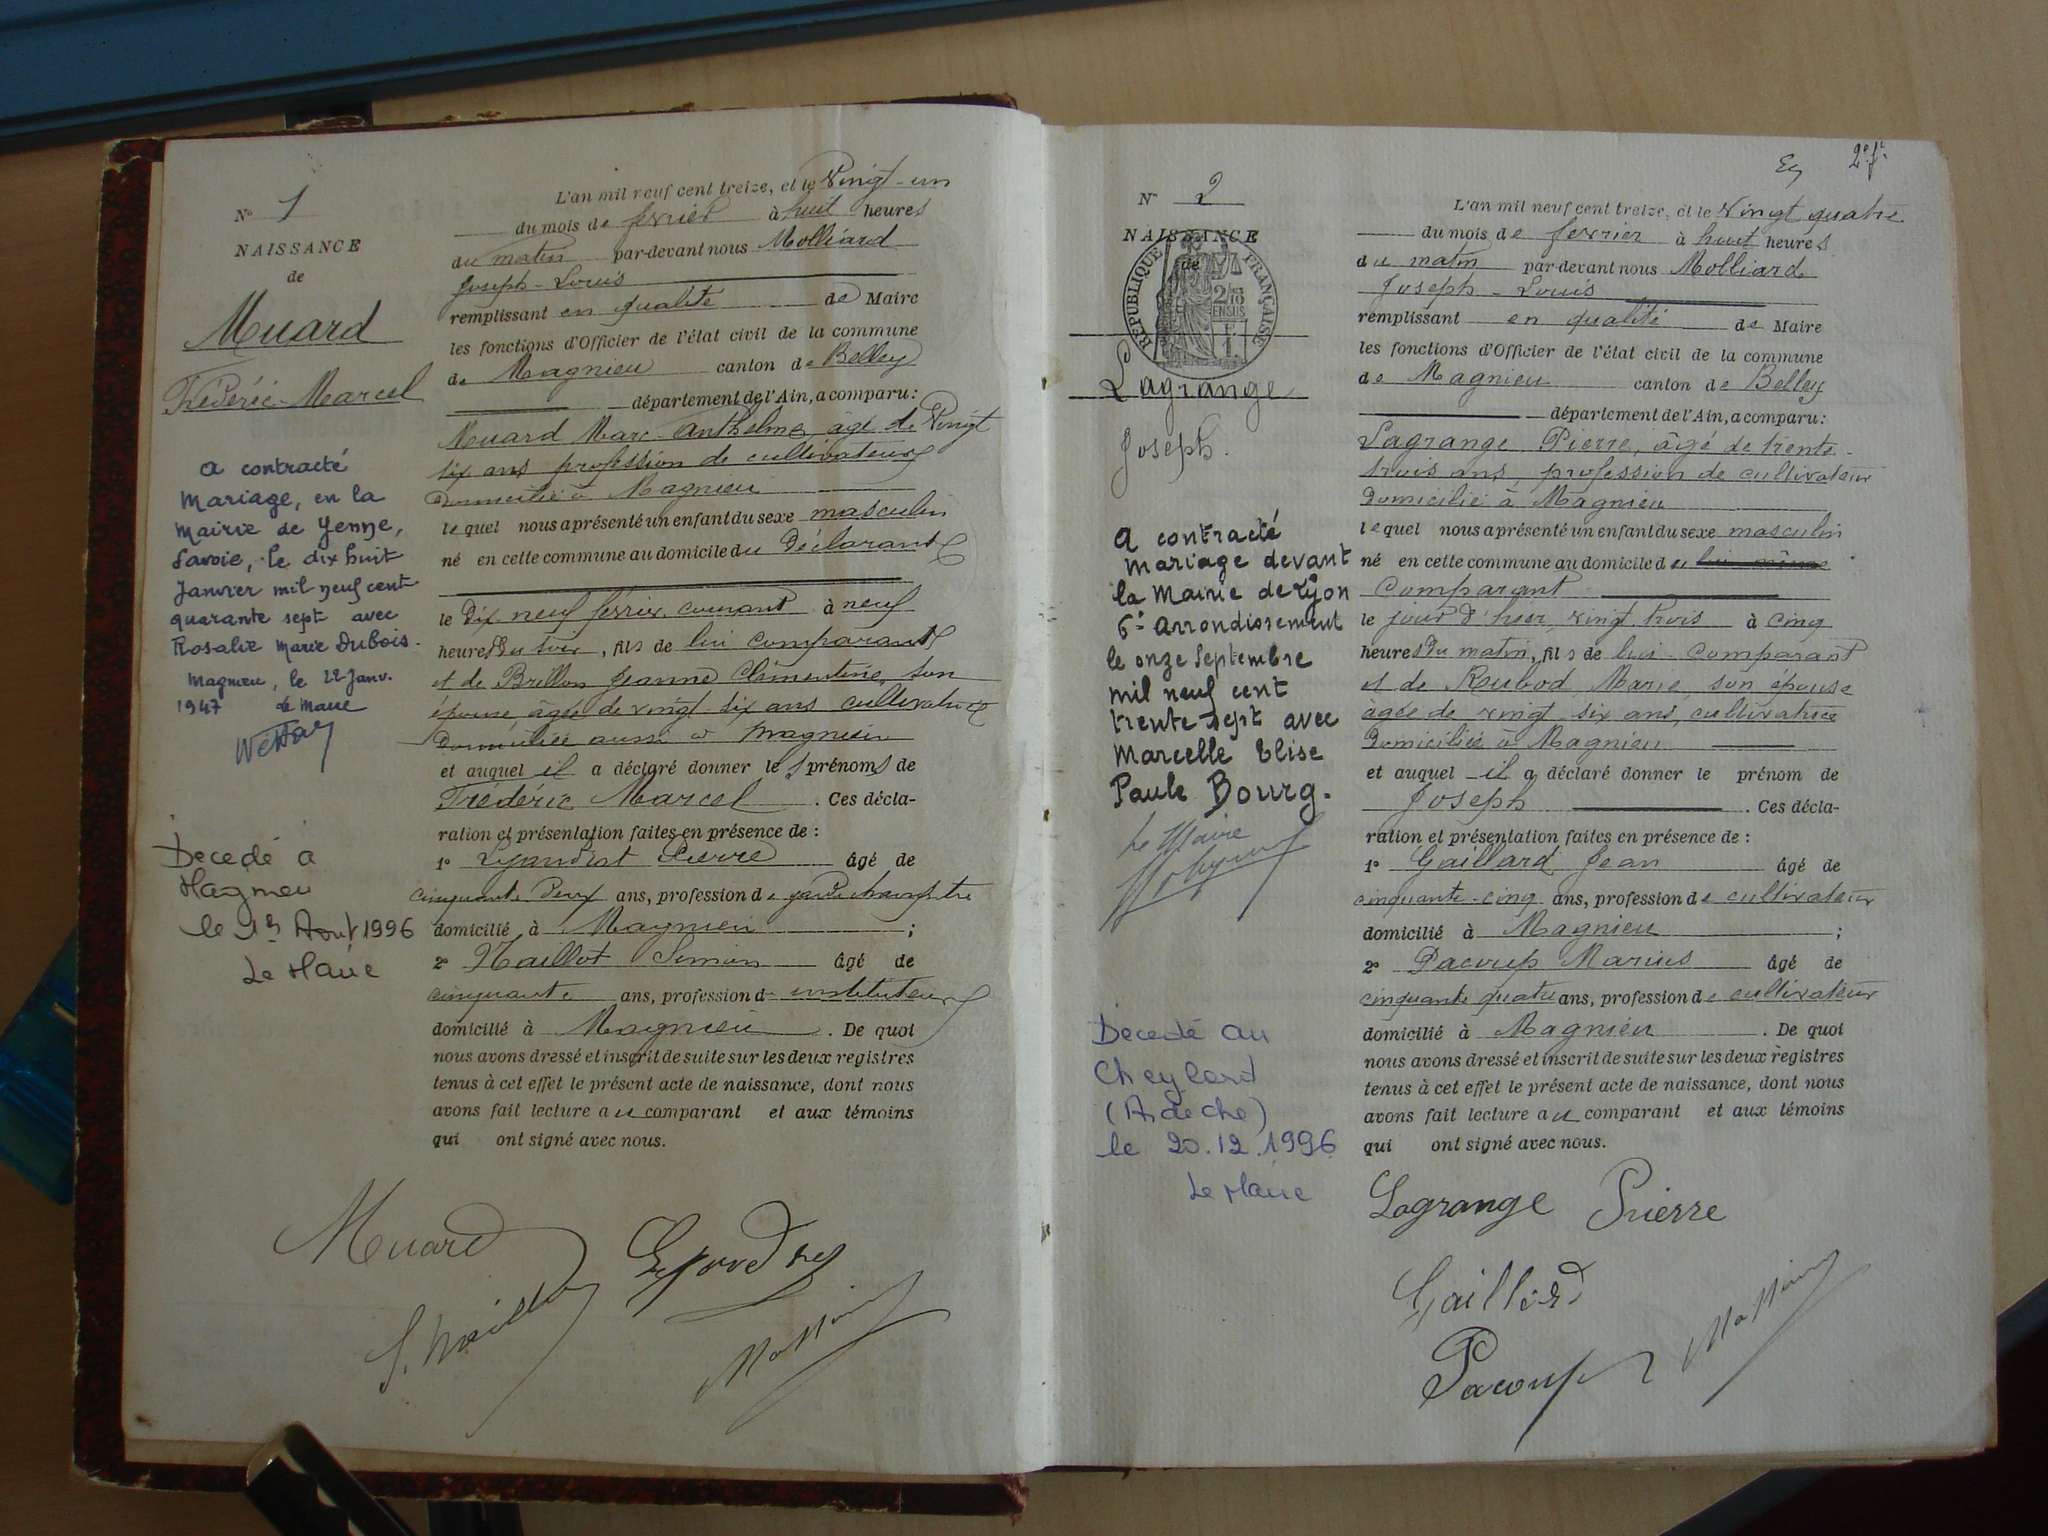 N° 1
NAISSANCE
de
Muard
Frédéric Marcel
a contracté
Mariage, en la
Mairie de Yenne,
Savoie, le dix huit
Janvier mil neuf cent
quarante sept avec
Rosalie Marie Dubois.
Magnieu, le 22 Janv.
1947 Le Maire
Décédé à
Magnieu
le Août 1996
Le Maire
L'an mil neuf cent treize, et le Vingt-un
du mois de février à huit heures
du matin par-devant nous Molliard
Joseph-Louis
remplissant en qualité de Maire
les fonctions d'Officier de l'état civil de la commune
de Magnieu canton de Belley
département de l'Ain, a comparu:
Muard Marc Anthelme, âgé de Vingt
six ans profession de cultivateur
Domicilié à Magnieu
lequel nous a présenté un enfant du sexe masculin
né en cette commune au domicile du Déclarant
le Dix neuf février courant à neuf
heures du soir, fils de lui comparant
et de Brillon Jeanne Clémentine, son
épouse, âgée de vingt six ans cultivatrice
Domiciliée aussi à Magnieu
et auquel il a déclaré donner les prénoms de
Frédéric Marcel. Ces décla-
ration et présentation faites en présence de :
1° Pierre âgé de
cinquante Deux ans, profession de garde champêtre
domicilié à Magnieu ;
2° Maillot Simon âgé de
cinquante ans, profession d instituteur
domicilié à Magnieu. De quoi
nous avons dressé et inscrit de suite sur les deux registres
tenus à cet effet le présent acte de naissance, dont nous
avons fait lecture au comparant et aux témoins
qui ont signé avec nous.
Muard
2e ft
N° 2
NAISSANCE
de
RÉPUBLIQUE FRANÇAISE
2/10
EN SUS
Lagrange
Joseph.
a contracté
mariage devant
la Mairie de Lyon
6e Arrondissement
le onze Septembre
mil neuf cent
trente sept avec
Marcelle Elise
Paule Bourg.
Le Maire
Décédé au
Cheylard
(Ardèche)
le 20.12.1996
Le Maire
L'an mil neuf cent treize, et le Vingt quatre
du mois de février à huit heures
du matin par-devant nous Molliard
Joseph-Louis
remplissant en qualité de Maire
les fonctions d'Officier de l'état civil de la commune
de Magnieu canton de Belley
département de l'Ain, a comparu:
Lagrange Pierre, âgé de trente
trois ans, profession de cultivateur
Domicilié à Magnieu
lequel nous a présenté un enfant du sexe masculin
né en cette commune au domicile du lui même
Comparant
le jour d'hier, vingt trois à cinq
heures du matin, fils de lui comparant
et de Rubod Marie, son épouse
âgée de vingt-six ans, cultivatrice
Domiciliée à Magnieu
et auquel il a déclaré donner le prénom de
Joseph. Ces décla-
ration et présentation faites en présence de :
1° Gaillard Jean âgé de
cinquante-cinq ans, profession de cultivateur
domicilié à Magnieu ;
2° Pacoup Marius âgé de
cinquante quatre ans, profession de cultivateur
domicilié à Magnieu. De quoi
nous avons dressé et inscrit de suite sur les deux registres
tenus à cet effet le présent acte de naissance, dont nous
avons fait lecture au comparant et aux témoins
qui ont signé avec nous.
Lagrange Pierre
Gaillard
Pacoup